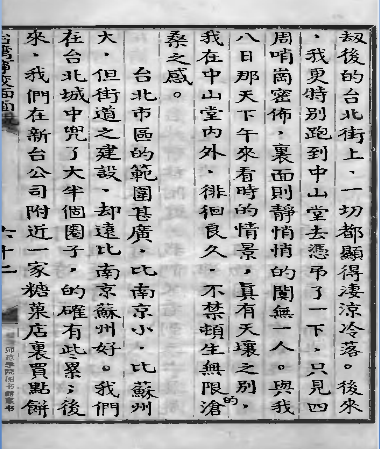 劫後的台北街上，一切都顯得淒涼冷落。後來
，我更特別跑到中山堂去憑吊了一下，只見四
周哨崗密佈，裏面則靜悄悄的闃無一人。與我
八日那天下午來看時的情景，真有天壤之別，
我在中山堂内外，徘徊良久，不禁頓生無限的滄
桑之感。
台北市區的範圍甚廣，比南京小，比蘇州
大，但街道之建設，却遠比南京蘇州好。我們
在台北城中兜了大半個圈子，的確有些累；後
來，我們在新台公司附近一家糖菓店裏買點餅
六十二